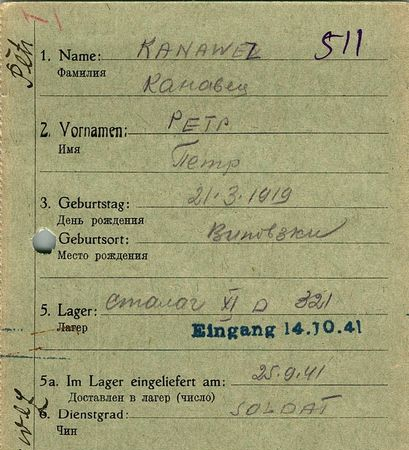 511
1. Name: KANAWEZ
Фамилия Канавец
2. Vornamen: PETR
Имя Петр
3. Geburtstag: 21.3.1919
День рождения
Geburtsort:
Место рождения
5. Lager: сталаг XI D 321
Лагер
Eingang 14.10.41
5a. Im Lager eingeliefert am: 25.9.41
Доставлен в лагер (число)
6. Dienstgrad: SOLDAT
Чин